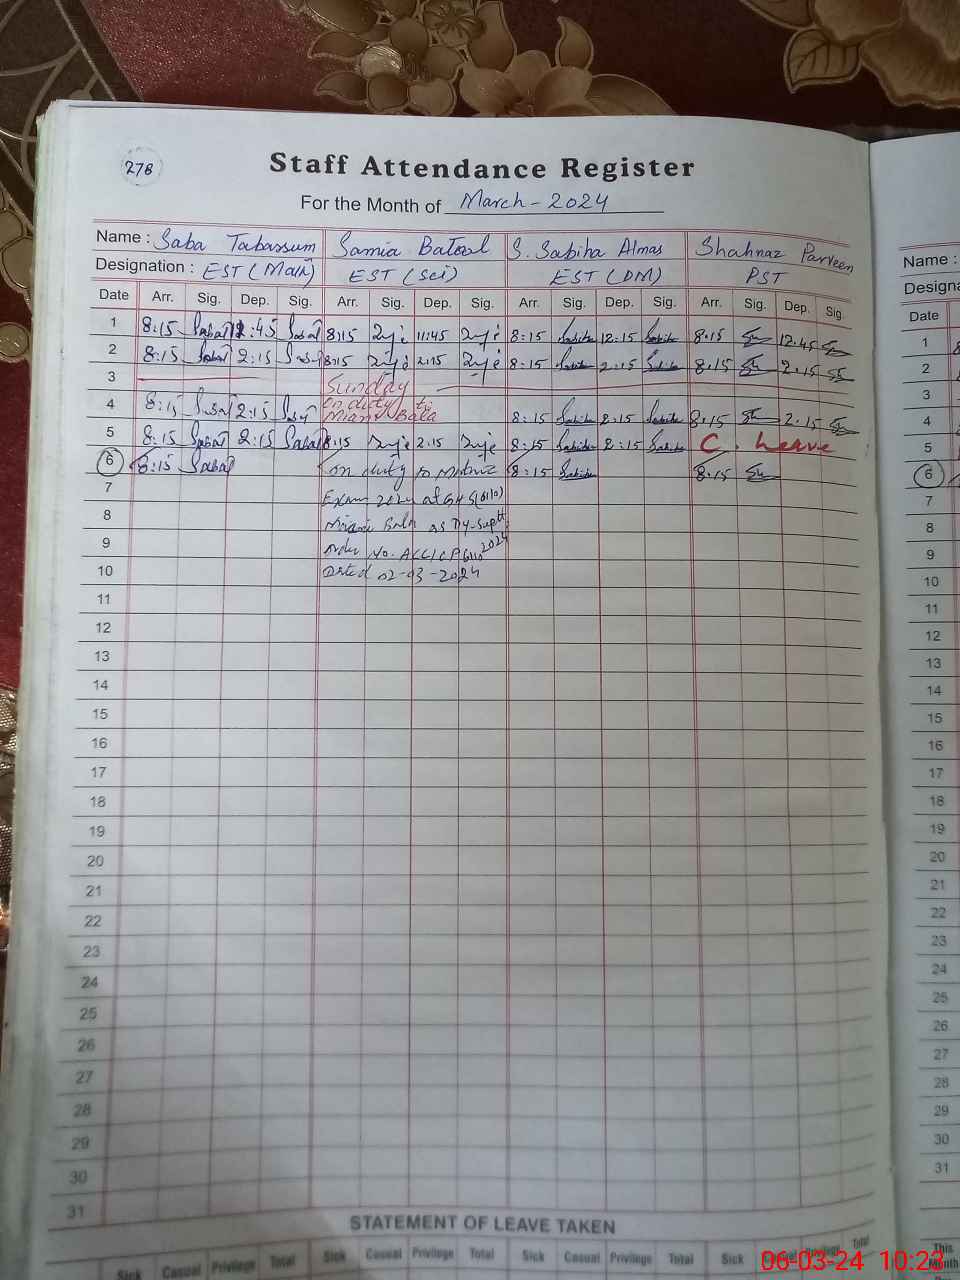 278
Staff Attendance Register
For the Month of March - 2024
Name : Saba Tabassum Samia Batool S. Sabiha Almas Shahnaz Parveen
Designation : EST (Math) EST (Sci) EST (DM) PST
Date Arr. Sig. Dep. Sig. Arr. Sig. Dep. Sig. Arr. Sig. Dep. Sig. Arr. Sig. Dep. Sig.
1 8:15 12:45 8:15 11:45 8:15 12:15 8:15 12:45
2 8:15 2:15 8:15 2:15 8:15 2:15 8:15 2:15
3 Sunday
4 8:15 2:15 on duty to Miani Bala 8:15 2:15 8:15 2:15
5 8:15 2:15 8:15 2:15 8:15 2:15 C. Leave
6 8:15 on duty to 8:15 8:15
7 Exam 2024 at
8 Miani Bala as
9 order No. 2024
10 Dated 02-03-2024
11
12
13
14
15
16
17
18
19
20
21
22
23
24
25
26
27
28
29
30
31
STATEMENT OF LEAVE TAKEN
Sick Casual Privilege Total Sick Casual Privilege Total Sick Casual Privilege Total Sick Casual Privilege Total
Name :
Designa
Date
1
2
3
4
5
6
7
8
9
10
11
12
13
14
15
16
17
18
19
20
21
22
23
24
25
26
27
28
29
30
31
This
Month
06-03-24 10:23